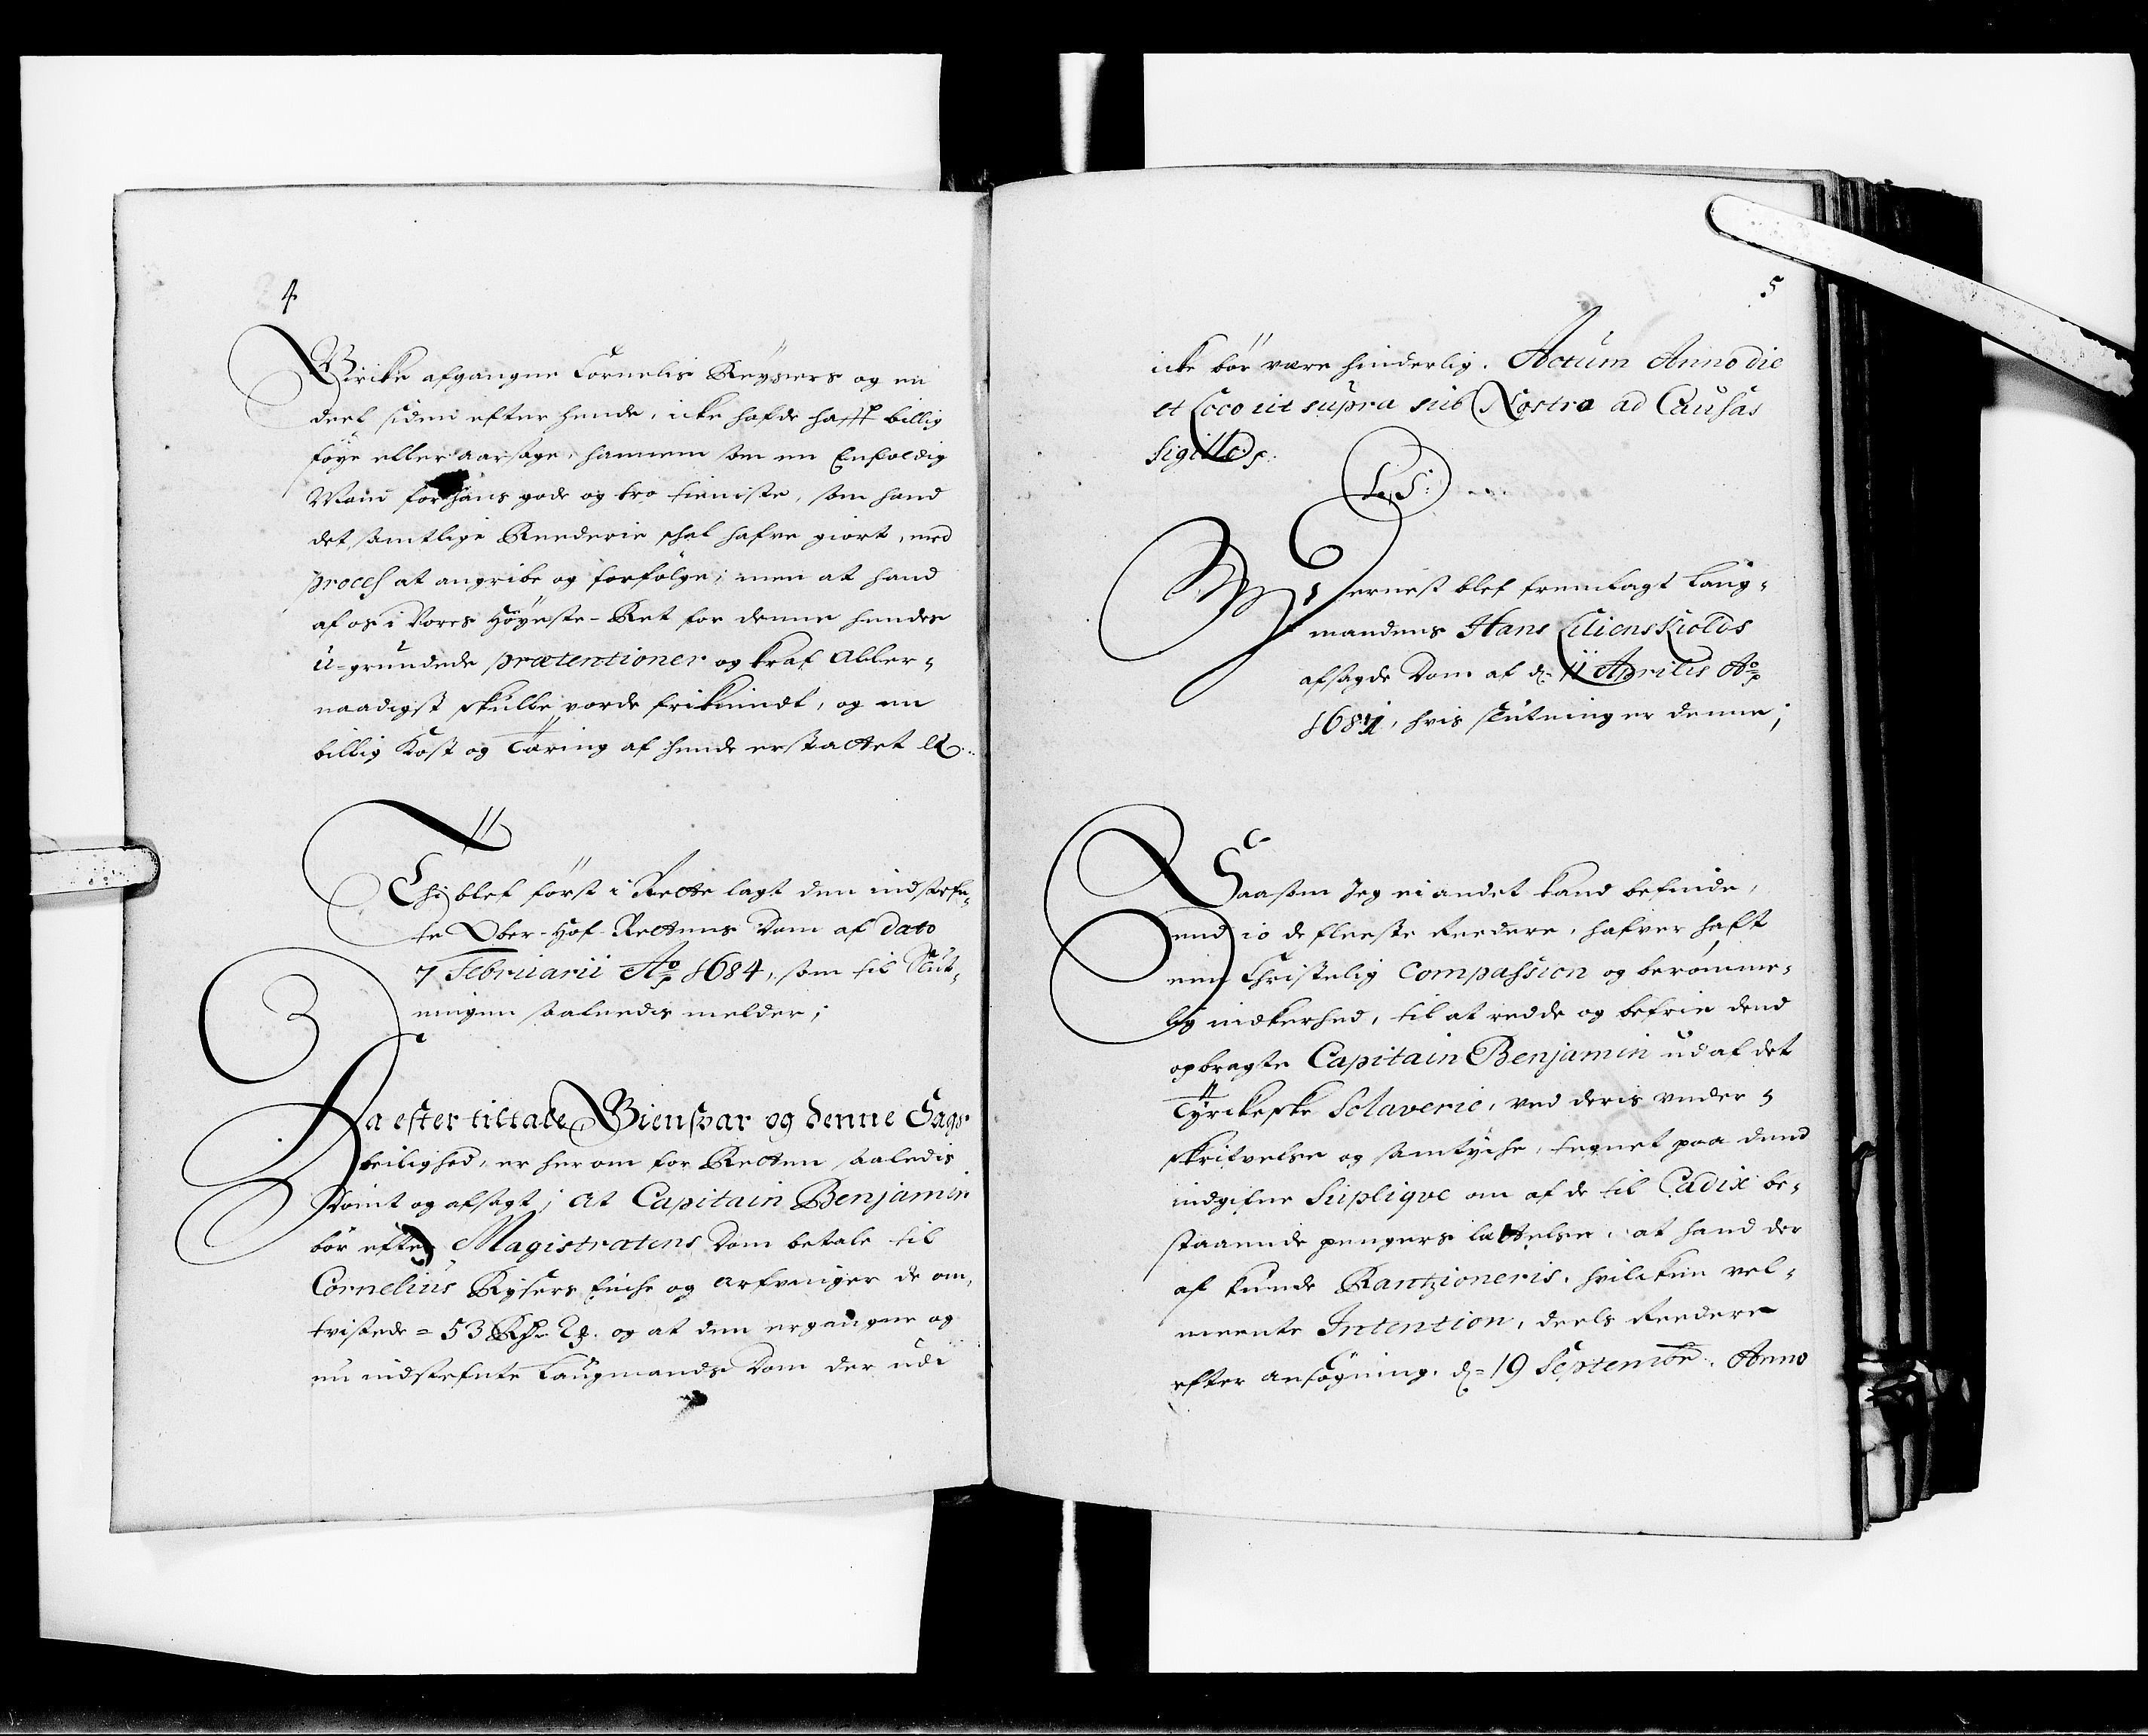 4
Birike afgangne Cornelis Reÿsers og en
deel siden efter hende, icke hafde hafft billig
föye eller aarsage, hannem som en Enfoldig
Mand for hans gode og tro tieniste, som hand
det samtlige Reederie schal hafve giort, med
process at angribe og forfölge; men at hand
af os i Vores Höyeste-Ret for denne hendes
u-grundede prætentioner og kraf Aller-
naadigst skulle vorde frikiendt, og en
billig Kost og Tæring af hende erstattet &c.
Thj blef först i Rette lagt den indstefn-
te Ober-Hof-Rettens Dom af dato
7 Februarii Ao 1684, som til Slut-
ningen saaledis melder;
Da efter tiltale Giensvar og denne Sags
beilighed, er herom for Retten saaledis
Dömt og afsagt; At Capitain Benjamin
bör efter Magistratens Dom betale til
Cornelius Rÿsers Enche og Arfvinger de om-
tvistede = 53 Rdr 2 og at den ergangne og
nu indstefnte Laugmands Dom der udi
5
icke bör være hinderlig. Actum Anno die
et Loco ut supra sub Nostro ad Causas
Sigillo.
L. S:
Dernest blef fremlagt Laug-
mandens Hans Lilienskiolds
afsagde Dom af d. 11 Aprilis Ao
1684, hvis slutning er denne;
Saasom Jeg ei andet kand befinde,
end io de fleeste Reedere, hafver haft
een Christelig Compassion og berömme-
lig inderhed, til at redde og befrie dend
opbragte Capitain Benjamin ud af det
Tyrckeske Sclaverie, ved deris under-
skrivelse og samtyche, tegnet paa dend
indgifne Suplique om af de til Cadix be-
staaende pengers lættelse, at hand der
af kunde Rantzioneris, hvilcken vel-
meente Intention, deels Reedere
efter ansögning. d. 19 Septembr. Anno